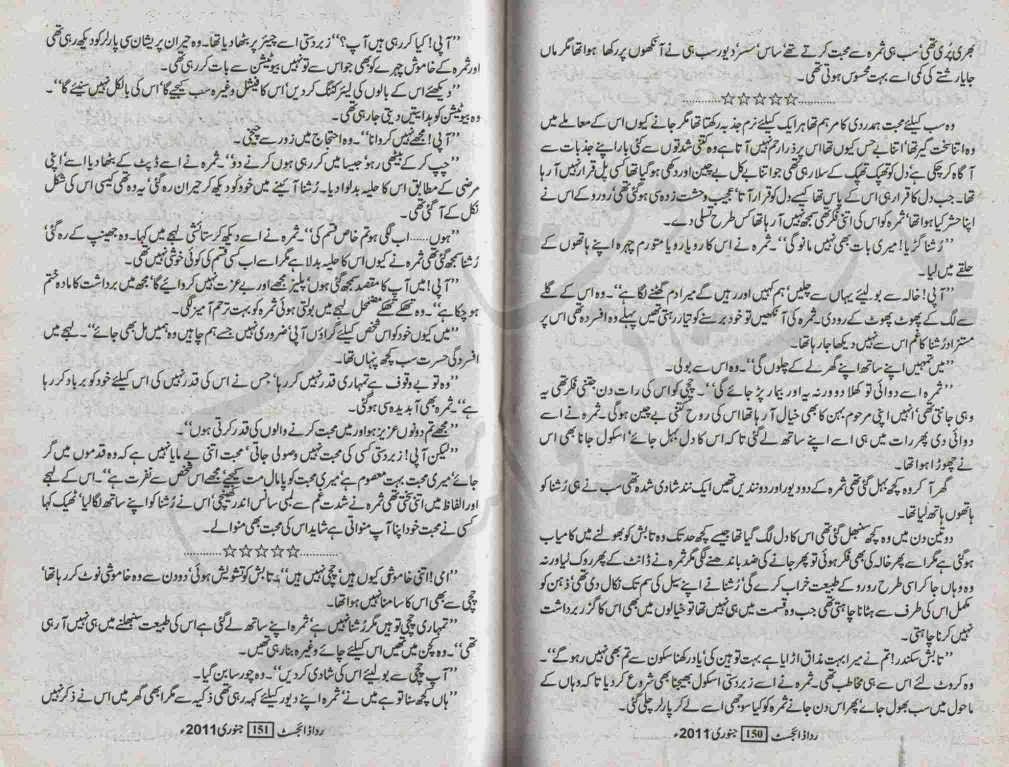 بھری پُری تھی‘ سب ہی ثمرہ سے محبت کرتے تھے‘ ساس‘ سسر‘ دیور سب ہی نے آنکھوں پر رکھا ہوا تھا مگر ماں
جایا رشتے کی کمی اسے بہت محسوس ہوتی تھی۔
............☆☆☆☆☆............
وہ سب کیلئے محبت ہمدردی کا مرہم تھا ہر ایک کیلئے نرم جذبہ رکھتا تھا مگر جانے کیوں اس کے معاملے میں
وہ اتنا سخت گیر تھا‘ اتنا بے حس کیوں تھا اس پر ذرا رحم نہیں آتا ہے وہ کتنی شدتوں سے گئی بار اپنے جذبات سے
آگاہ کر چکی ہے‘ دل کو تھپک تھپک کے سلا رہی تھی جو اتنا بے کل بے چین اور دکھی ہو گیا تھا کسی پل قرار نہیں آ رہا
تھا۔ جب دل کا قرار ہی اس کے پاس تھا کیسے دل کو قرار آتا‘ عجیب وحشت زدہ سی ہو گئی تھی‘ رو رو کے اس نے
اپنا حشر کیا ہوا تھا‘ ثمرہ کو اس کی اتنی فکر تھی سمجھ نہیں آ رہا تھا کس طرح تسلی دے۔
’’رُشنا گڑیا! میری بات بھی نہیں مانو گی‘‘۔ ثمرہ نے اس کا رویا رویا متورم چہرہ اپنے ہاتھوں کے
حلقے میں لیا۔
’’آپی! خالہ سے بولیئے یہاں سے چلیں‘ ہم کہیں اور رہیں گے میرا دم گھٹنے لگا ہے‘‘۔ وہ اس کے گلے
سے لگ کے پھوٹ پھوٹ کے رو دی۔ ثمرہ کی آنکھیں تو خود برسنے کو تیار رہتی تھیں پہلے وہ افسردہ تھی اس پر
مستزاد رُشنا کا غم اس سے نہیں دیکھا جا رہا تھا۔
’’میں تمہیں اپنے ساتھ اپنے گھر لے کے چلوں گی‘‘۔ وہ اس سے بولی۔
’’ثمرہ اسے دوائی تو کھلا دو ورنہ یہ اور بیمار پڑ جائے گی‘‘۔ چچی کو اس کی رات دن جتنی فکر تھی یہ
وہی جانتی تھی‘ انہیں اپنی مرحوم بہن کا بھی خیال آ رہا تھا اس کی روح کتنی بے چین ہو گی۔ ثمرہ نے اسے
دوائی دی پھر رات میں ہی اسے اپنے ساتھ لے گئی تاکہ اس کا دل بہل جائے‘ اسکول جانا بھی اس
نے چھوڑا ہوا تھا۔
گھر آ کر وہ کچھ بہل گئی تھی ثمرہ کے دو دیور اور دو نندیں تھیں ایک نند شادی شدہ تھی سب نے ہی رُشنا کو
ہاتھوں ہاتھ لیا تھا۔
دو تین دن میں وہ کچھ سنبھل گئی تھی اس کا دل لگ گیا تھا جیسے کچھ حد تک وہ تابش کو بھولنے میں کامیاب
ہو گئی ہے مگر اسے پھر خالہ کی بھی فکر ہوئی تو پھر جانے کی ضد باندھنے لگی مگر ثمرہ نے ڈانٹ کے پھر روک لیا ورنہ
وہ وہاں جا کر اسی طرح رو رو کے طبیعت خراب کرے گی‘ رُشنا نے اپنے سیل کی سم تک نکال دی تھی‘ ذہن کو
مکمل اس کی طرف سے ہٹانا چاہتی تھی جب وہ قسمت میں ہی نہیں تھا تو خیالوں میں بھی اس کا گزر برداشت
نہیں کرنا چاہتی۔
’’تابش سکندر! تم نے میرا بہت مذاق اڑایا ہے بہت توہین کی‘ یاد رکھنا سکون سے تم بھی نہیں رہو گے‘‘۔
وہ کروٹ لئے اس سے ہی مخاطب تھی۔ ثمرہ نے اسے زبردستی اسکول بھیجنا بھی شروع کر دیا تاکہ وہاں کے
ماحول میں سب بھول جائے‘ پھر اس دن جانے ثمرہ کو کیا سوجھی اسے لے کر پارلر چلی گئی۔
رداڈائجسٹ 150 جنوری 2011ء
’’آپی! کیا کر رہی ہیں آپ؟‘‘ زبردستی اسے چیئر پر بٹھا دیا تھا۔ وہ حیران پریشان سی پارلر کو دیکھ رہی تھی
اور ثمرہ کے خاموش چہرے کو بھی جو اس سے تو نہیں بیوٹیشن سے بات کر رہی تھی۔
’’دیکھئے اس کے بالوں کی لیئر کٹنگ کر دیں‘ اس کا فیشل وغیرہ سب کیجیے گا‘ اس کی بالکل نہیں سنیئے گا‘‘۔
وہ بیوٹیشن کو ہدایتیں دیتی جا رہی تھی۔
’’آپی! مجھے نہیں کروانا‘‘۔ وہ احتجاج میں زور سے چیخی۔
’’چپ کر کے بیٹھی رہو‘ جیسا میں کر رہی ہوں کرنے دو‘‘۔ ثمرہ نے اسے ڈپٹ کے بٹھا دیا اسے‘ اپنی
مرضی کے مطابق اس کا حلیہ بدلوا دیا۔ رُشنا آئینے میں خود کو دیکھ کر حیران رہ گئی‘ یہ وہ تھی کیسی اس کی شکل
نکل کے آ گئی تھی۔
’’ہوں......اب لگی ہو تم خاص قسم کی‘‘۔ ثمرہ نے اسے دیکھ کر ستائشی لہجے میں کہا۔ وہ جھینپ کے رہ گئی‘
رُشنا سمجھ گئی تھی ثمرہ نے کیوں اس کا حلیہ بدلا ہے مگر اسے اب کسی قسم کی کوئی خوشی نہیں تھی۔
’’آپی! میں آپ کا مقصد سمجھ گئی ہوں‘ پلیز مجھے اور بے عزت نہیں کروائیے گا‘ مجھ میں برداشت کا مادہ ختم
ہو چکا ہے‘‘۔ وہ تھکے تھکے مضمحل لہجے میں بولتی ہوئی ثمرہ کو بہت ترحم آمیز لگی۔
’’میں کیوں خود کو اس شخص کیلئے گراؤں آپی‘ ضروری نہیں جسے ہم چاہیں وہ ہمیں مل بھی جائے‘‘۔ لہجے میں
افسردگی حسرت سب کچھ پنہاں تھا۔
’’وہ تو بے وقوف ہے تمہاری قدر نہیں کر رہا‘ جس نے اس کی قدر نہیں کی اس کیلئے خود کو برباد کر رہا
ہے‘‘۔ ثمرہ بھی آبدیدہ سی ہو گئی۔
’’مجھے تم دونوں عزیز ہو اور میں محبت کرنے والوں کی قدر کرتی ہوں‘‘۔
’’لیکن آپی! زبردستی کسی کی محبت نہیں وصولی جاتی‘ محبت اتنی بے مایا نہیں ہے کہ وہ قدموں میں گر
جائے‘ میری محبت بہت معصوم ہے‘ میری محبت کو پامال مت کیجیے‘ مجھے اس شخص سے نفرت ہے‘‘۔ اس کے لہجے
اور الفاظ میں اتنی سختی تھی ثمرہ نے شدت غم سے لمبی سانس اندر کھینچی‘ اس نے رُشنا کو اپنے ساتھ لگا لیا‘ ٹھیک کہا
کسی نے محبت خود اپنا آپ منواتی ہے شاید اس کی محبت بھی منوا لے۔
............☆☆☆☆☆............
’’امی! اتنی خاموشی کیوں ہیں‘ چچی نہیں ہیں‘‘۔ تابش کو تشویش ہوئی‘ دو دن سے وہ خاموشی نوٹ کر رہا تھا‘
چچی سے بھی اس کا سامنا نہیں ہوا تھا۔
’’تمہاری چچی تو ہیں مگر رُشنا نہیں ہے‘ ثمرہ اپنے ساتھ لے گئی ہے اس کی طبیعت سنبھلنے میں ہی نہیں آ رہی
تھی‘‘۔ وہ کچن میں تھیں اس کیلئے چائے وغیرہ بنا رہی تھیں۔
’’آپ چچی سے بولیئے اس کی شادی کر دیں‘‘۔ وہ چور سا بن گیا۔
’’ہاں کچھ سنا تو ہے میں نے‘ ثمرہ اپنے دیور کیلئے کہہ رہی تھی ذکیہ سے مگر ابھی گھر میں اس نے ذکر نہیں
رداڈائجسٹ 151 جنوری 2011ء